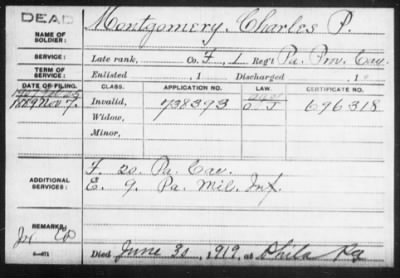 DEAD
NAME OF SOLDIER: Montgomery, Charles P.
SERVICE: Late rank, Co. F, 1 Reg't Pa. Prov. Cav.
TERM OF SERVICE: Enlisted , 1 Discharged , 1
DATE OF FILING. CLASS. APPLICATION NO. LAW. CERTIFICATE NO.
Nov 7. Invalid, 738393 696318
Widow,
Minor,
ADDITIONAL SERVICES: F. 20 Pa. Cav.
G. 9. Pa. Mil. Inf.
REMARKS:
Died June 30, 1919, at Phila Pa